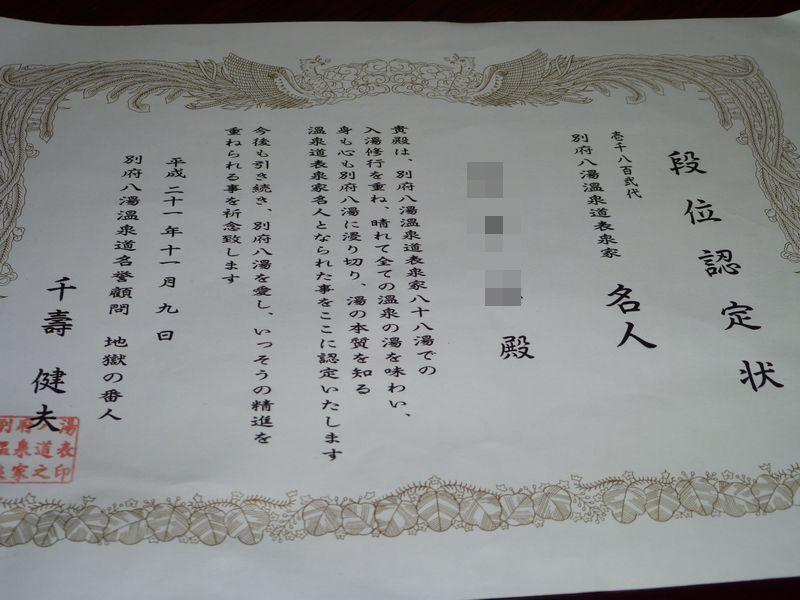 段位認定状
壱千八百弐代
別府八湯温泉道表泉家
名人
殿
貴殿は、別府八湯温泉道表泉家八十八湯での
入湯修行を重ね、晴れて全ての温泉の湯を味わい、
身も心も別府八湯に浸り切り、湯の本質を知る
温泉道表泉家名人となられた事をここに認定いたします
今後も引き続き、別府八湯を愛し、いっそうの精進を
重ねられる事を祈念致します
平成二十一年十一月九日
別府八湯温泉道名誉顧問 地獄の番人
千壽健夫
別府八湯
温泉道表
泉家之印